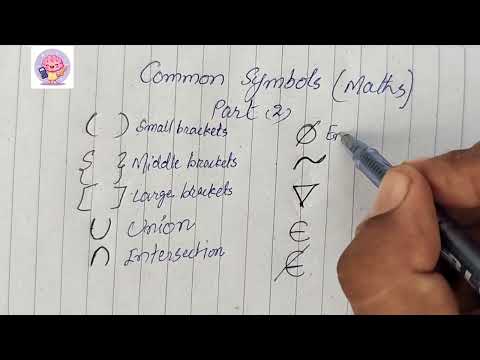 Common Symbols (Maths)
Part (2)
( ) Small brackets
{ } Middle brackets
[ ] Large brackets
∪ Union
∩ Intersection
∅ Em
~
∇
∈
∉